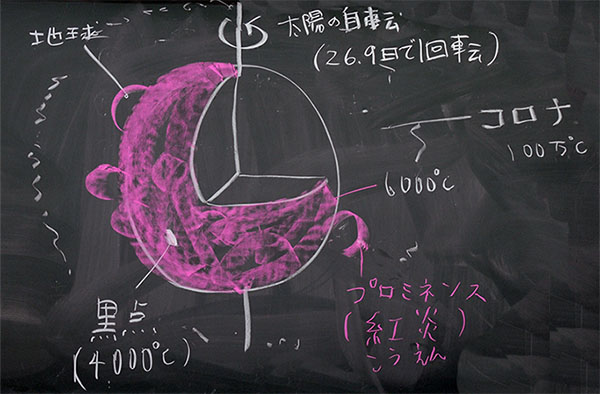 地球
太陽の自転
(26.9日で1回転)
コロナ
100万℃
6000℃
プロミネンス
(紅炎)
こうえん
黒点
(4000℃)